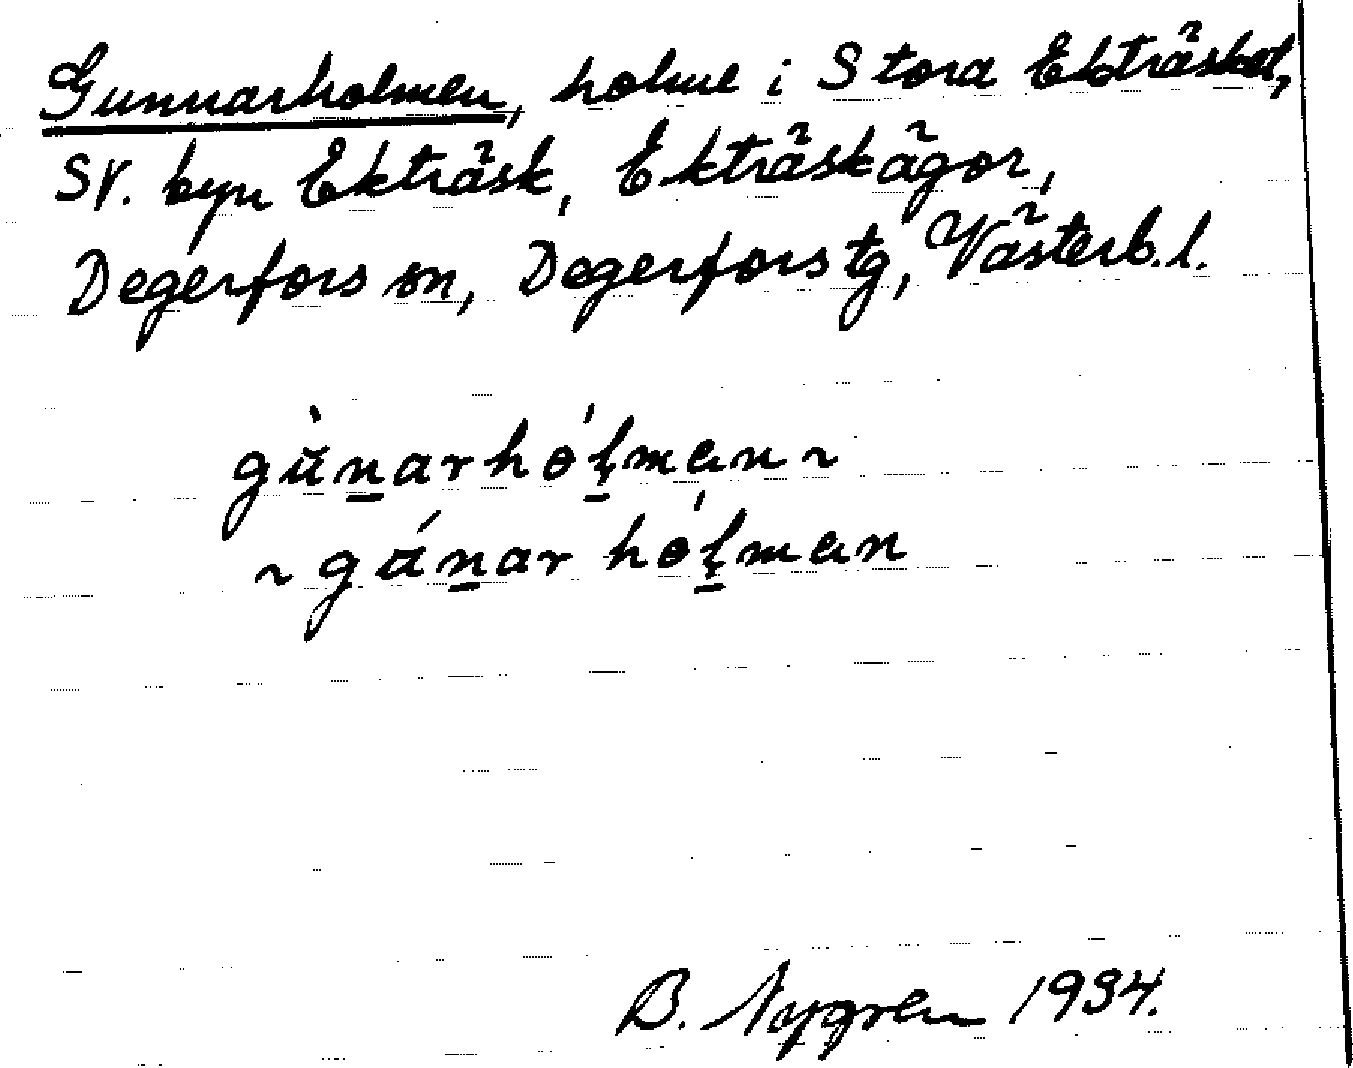 Gunnarholmen, holme i Stora Ekträsket,
SV. byn Ekträsk, Ekträskägor,
Degerfors sn, Degerfors tg, Västerb. l.
gùn̲arhól̲man ~
~ gún̲ar hól̲man
B. Nygren 1934.